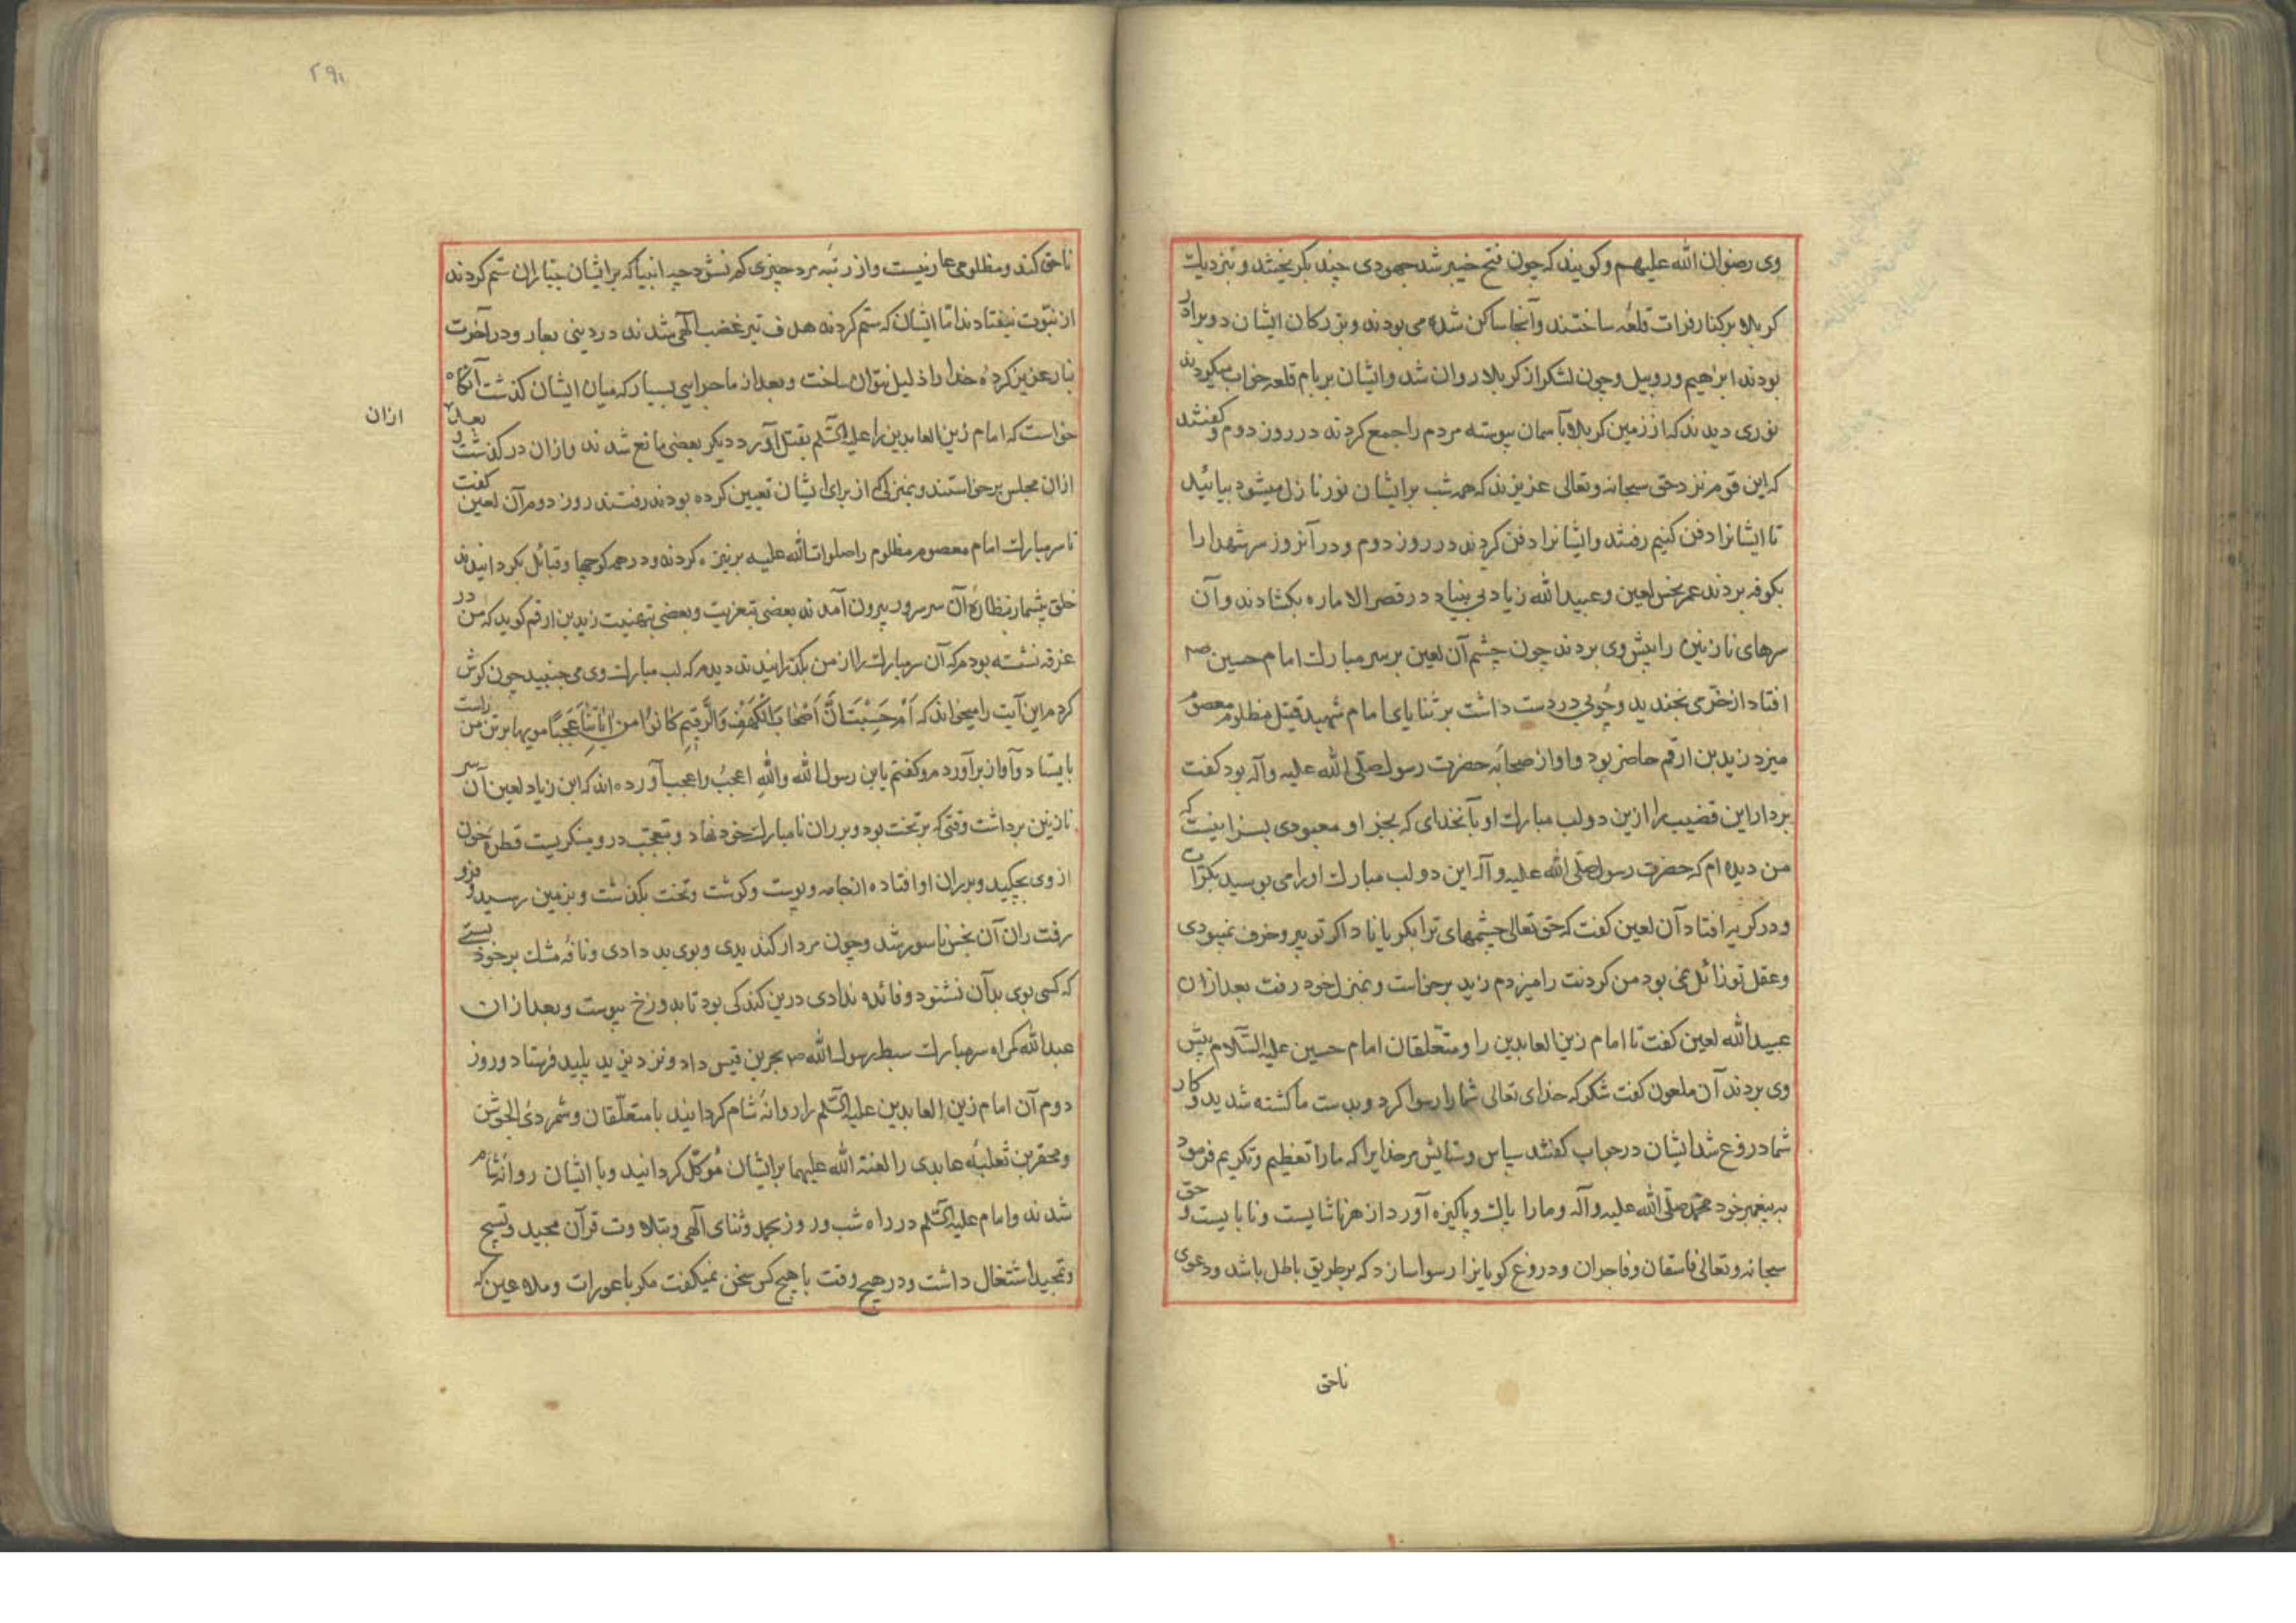 وی رضوان الله علیهم وکویند که چون فتح خیبر شد جهودی چند بکریختند و بنزدیك
کربلا برکنار فرات قلعهٔ ساختند وآنجا ساکن شده می بودند وبزرکان ایشان دو برادر
بودند ابراهیم وروبیل وچون لشکر از کربلا روان شد وایشان بر بام قلعه خواب میکردند
نوری دیدند که از زمین کربلا بآسمان پیوسته مردم را جمع کردند در روز دوم وکفتند
که این قوم نزد حق سبحانه وتعالی عزیزند که همه شب برایشان نور نازل میشود بیائید
تا ایشانرا دفن کنیم رفتند وایشانرا دفن کردند در روز دوم ودر آنروز سر شهدا را
بکوفه بردند عمر نجس لعین وعبیدالله زیاد بی بنیاد در قصر الاماره بکشادند وآن
سرهای نازنین را پیش وی بردند چون چشم آن لعین بر سر مبارك امام حسین صہ
افتاد از خرّمی بخندید وچوبی در دست داشت بر ثنایای امام شهید قتیل مظلوم معصوم
میزد زید بن ارقم حاضر بود واو از صحابهٔ حضرت رسول صلّی الله علیه وآله بود کفت
بردار این قضیب را ازین دو لب مبارك او بآنخدای که بجز او معبودی بسزا نیست که
من دیده ام که حضرت رسول صلّی الله علیه وآله این دو لب مبارك او را می بوسید بکرّات
ودر کریه افتاد آن لعین کفت که حق تعالی چشمهای ترا بکریاناد اکر تو پیر وخرف نمیبودی
وعقل تو زائل نمی بود من کردنت را میزدم زید برخاست وبمنزل خود رفت بعد ازان
عبیدالله لعین کفت تا امام زین العابدین را ومتعلّقان امام حسین علیه السّلام پیش
وی بردند آن ملعون کفت شکر که خدای تعالی شما را رسوا کرد وبدست ما کشته شدید وکار
شما دروغ شد ایشان در جواب کفتند سپاس وستایش مر خدایرا که ما را تعظیم وتکریم فرمود
به پیغمبر خود محمّد صلّی الله علیه وآله وما را پاك وپاکیزه آورد از هر ناشایست ونابایست وحق
سبحانه وتعالی فاسقان وفاجران ودروغ کویانرا رسوا سازد که بر طریق باطل باشد ودعوی
ناحق
۲۹۱
ناحق کند ومظلومی عار نیست واز رتبه مرد چیزی کم نشود چه انبیا که برایشان جبّاران ستم کردند
از نبوّت نیفتادند امّا ایشان که ستم کردند هدف تیر غضب الٓهی شدند در دینی بعار ودر آخرت
بنار عزیز کردهٔ خدا را ذلیل نتوان ساخت وبعد از ماجرایی بسیار که میان ایشان کذشت آنکاه
خواست که امام زین العابدین را علیه السّلم بقتل آورد دیکر بعضی مانع شدند وازان درکذشت وبعد
ازان
ازان مجلس برخاستند وبمنزلی که از برای ایشان تعیین کرده بودند رفتند روز دوم آن لعین کفت
تا سر مبارك امام معصوم مظلوم را صلوات الله علیه بر نیزه کردند ودر همه کوچها وقبائل بکردانیدند
خلق بیشمار بنظارهٔ آن سر سرور بیرون آمدند بعضی بتعزیت وبعضی بتهنیت زید بن ارقم کوید که من در
غرفه نشسته بودم که آن سر مبارك را از من بکذرانیدند دیدم که لب مبارك وی می جنبید چون کوش
کردم این آیت را میخواند که اَمْ حَسِبْتَ اَنَّ اَصْحَابَ الْکَهْفِ وَالرَّقِیمِ کَانُوا مِن اٰیَاتِنَا عَجَبًا مویها بر تن من راست
بایستاد وآواز برآوردم وکفتم یابن رسول الله واللهِ اعجبُ واعجب آورده اند که ابن زیاد لعین آن سر
نازنین برداشت وقتی که بر تخت بود وبر ران نامبارك خود نهاد وبتعجّب درو مینکریست قطرهٔ خون
از وی بچکید وبر ران او افتاده از جامه وپوست وکوشت وتخت بکذشت وبزمین رسید وفرو
رفت ران آن نجس ناسور شد وچون مردار کندیدی وبوی بد دادی ونافهٔ مشك بر خود بستی
که کسی بوی بد آن نشنود وفائده ندادی درین کندکی بود تا بدوزخ پیوست وبعد ازان
عبدالله کمراه سر مبارك سبط رسول الله صہ بحر بن قیس داد ونزد یزید پلید فرستاد وروز
دوم آن امام زین العابدین علیه السّلم را روانهٔ شام کردانید با متعلّقان وشمر ذی الجوشن
ومحقر بن ثعلبهٔ عابدی را لعنة الله علیهما برایشان موکّل کردانید وبا ایشان روانهٔ شام
شدند وامام علیه السّلم در راه شب وروز بحمد وثنای الٓهی وبتلاوت قرآن مجید وتسبیح
وتمجید اشتغال داشت ودر هیچ وقت با هیچ کس سخن نمیکفت مکر با عورات وملاعین که